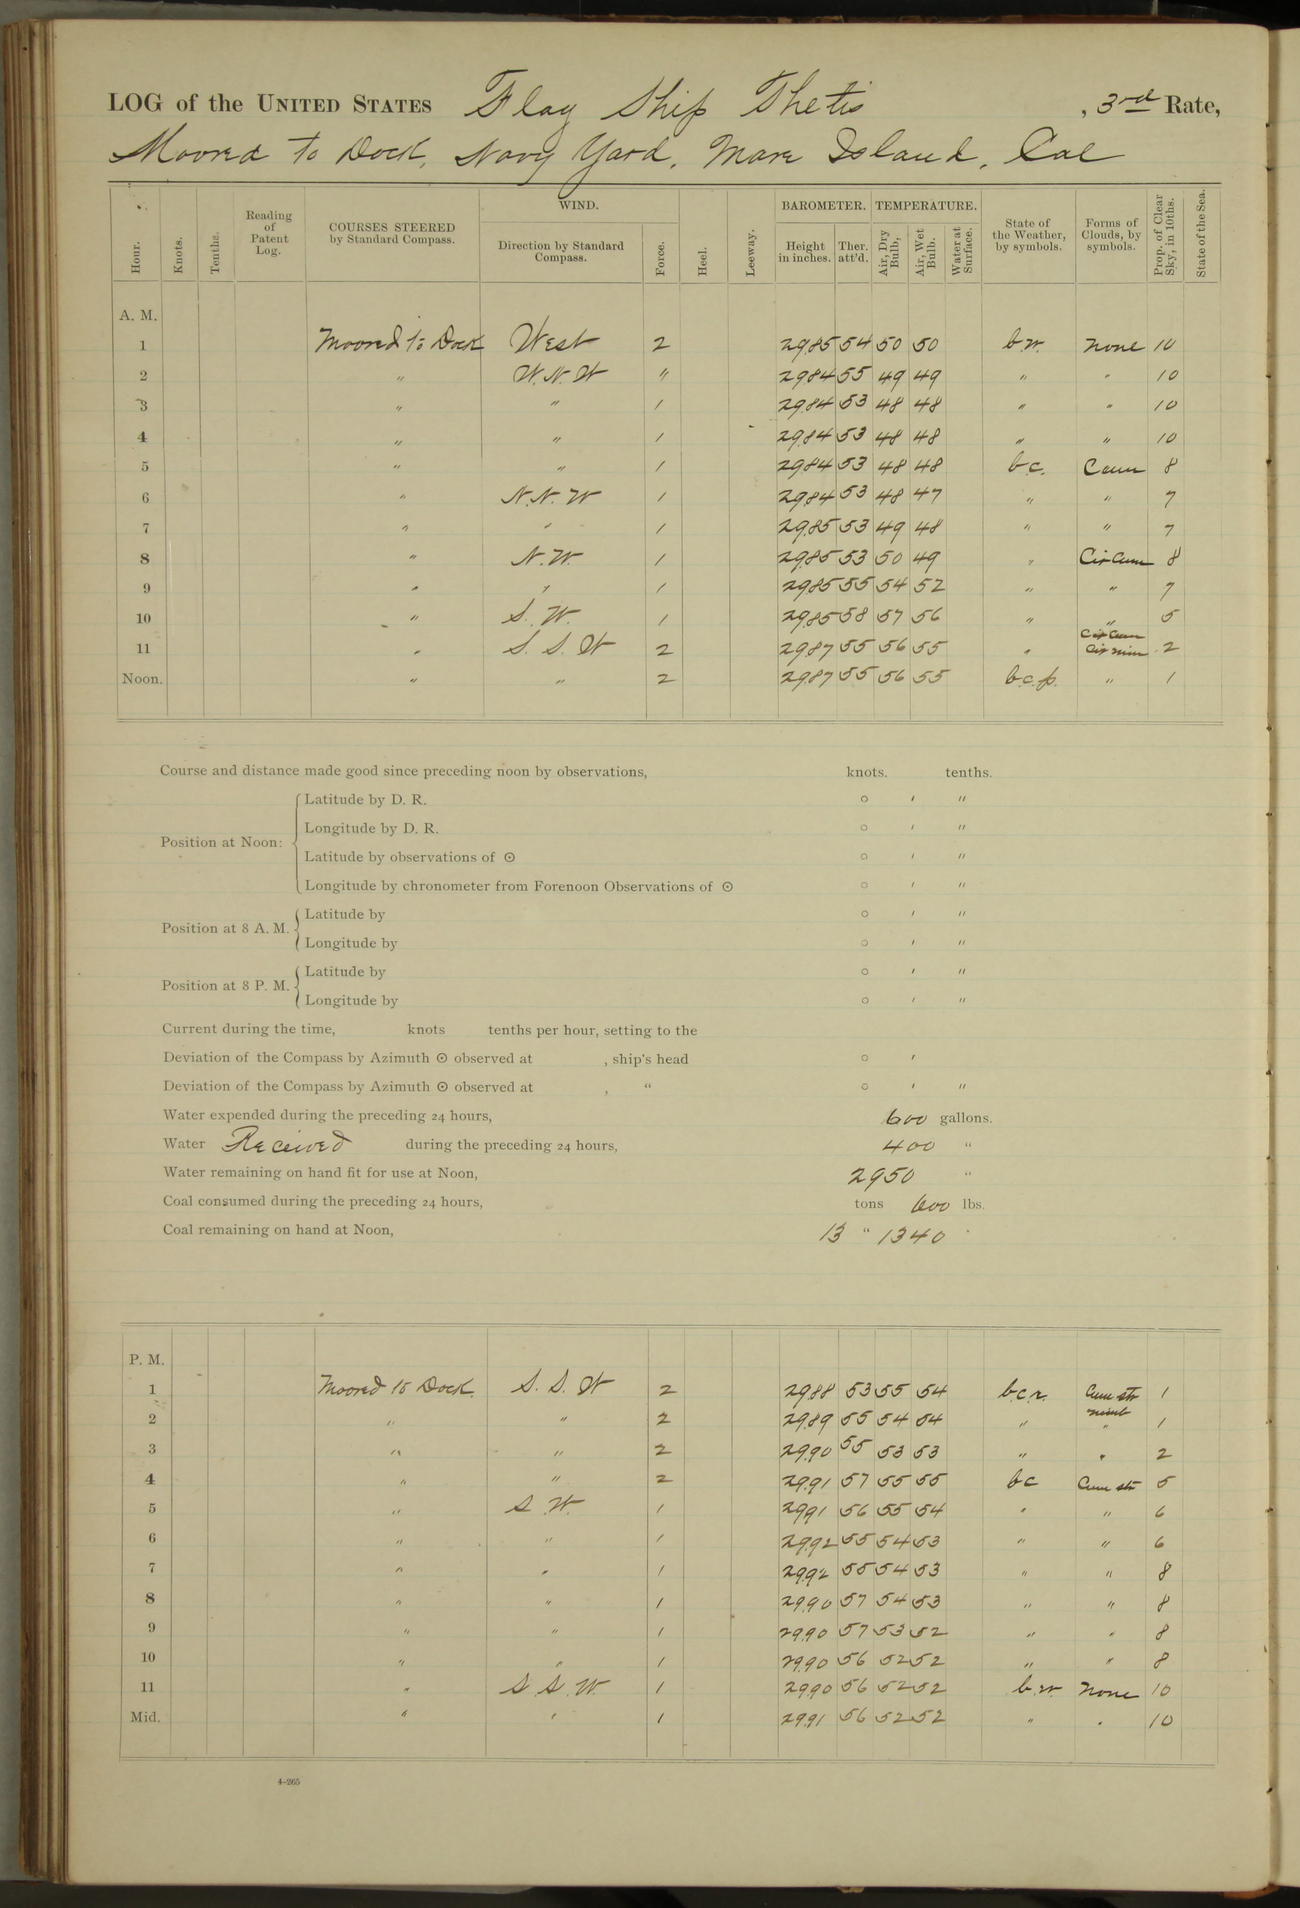 LOG of the UNITED STATES Flag Ship Thetis , 3rd Rate,
Moored to Dock, Navy Yard, Mare Island, Cal
WIND. BAROMETER. TEMPERATURE.
Hour. Knots. Tenths. Reading of Patent Log. COURSES STEERED by Standard Compass. Direction by Standard Compass. Force. Heel. Leeway. Height in inches. Ther. att'd. Air, Dry Bulb, Air, Wet Bulb. Water at Surface. State of the Weather, by symbols. Forms of Clouds, by symbols. Prop. of Clear Sky, in 10ths. State of the Sea.
A. M.
1 Moored to Dock West 2 29.85 54 50 50 b.v. none 10
2 " W.N.W " 29.84 55 49 49 " " 10
3 " " 1 29.84 53 48 48 " " 10
4 " " 1 29.84 53 48 48 " " 10
5 " " 1 29.84 53 48 48 b.c. Cum 8
6 " N.N.W 1 29.84 53 48 47 " " 7
7 " " 1 29.85 53 49 48 " " 7
8 " N.W. 1 29.85 53 50 49 " Cir Cum 8
9 " " 1 29.85 55 54 52 " " 7
10 " S.W. 1 29.85 58 57 56 " " 5
11 " S.S.W 2 29.87 55 56 55 " Cir Cum Cir nim 2
Noon. " " 2 29.87 55 56 55 b.c.p. " 1
Course and distance made good since preceding noon by observations, knots. tenths.
Position at Noon:
Latitude by D. R. ○ ′ ″
Longitude by D. R. ○ ′ ″
Latitude by observations of ⊙ ○ ′ ″
Longitude by chronometer from Forenoon Observations of ⊙ ○ ′ ″
Position at 8 A. M.
Latitude by ○ ′ ″
Longitude by ○ ′ ″
Position at 8 P. M.
Latitude by ○ ′ ″
Longitude by ○ ′ ″
Current during the time, knots tenths per hour, setting to the
Deviation of the Compass by Azimuth ⊙ observed at , ship's head ○ ′
Deviation of the Compass by Azimuth ⊙ observed at , " ○ ′ ″
Water expended during the preceding 24 hours, 600 gallons.
Water Received during the preceding 24 hours, 400 "
Water remaining on hand fit for use at Noon, 2950 "
Coal consumed during the preceding 24 hours, tons 600 lbs.
Coal remaining on hand at Noon, 13 " 1340 "
P. M.
1 Moored to Dock. S.S.W 2 29.88 53 55 54 b.c.r. Cum str nimb 1
2 " " 2 29.89 55 54 54 " " 1
3 " " 2 29.90 55 53 53 " " 2
4 " " 2 29.91 57 55 55 bc Cum str 5
5 " S.W. 1 29.91 56 55 54 " " 6
6 " " 1 29.92 55 54 53 " " 6
7 " " 1 29.92 55 54 53 " " 8
8 " " 1 29.90 57 54 53 " " 8
9 " " 1 29.90 57 53 52 " " 8
10 " " 1 29.90 56 52 52 " " 8
11 " S.S.W. 1 29.90 56 52 52 b.v. none 10
Mid. " " 1 29.91 56 52 52 " " 10
4-265